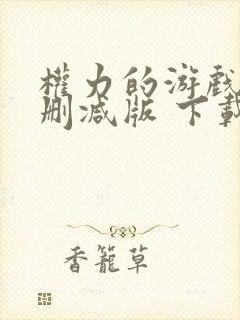 權力的游戲
刪減版 下載
香籠草